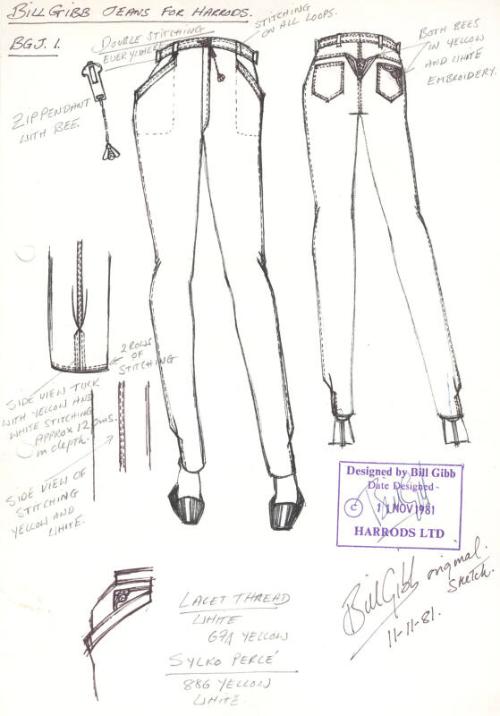 BILL GIBB JEANS FOR HARRODS.
BGJ. 1.
DOUBLE STITCHING
EVERYWHERE
STITCHING
ON ALL LOOPS.
BOTH BEES
IN YELLOW
AND WHITE
EMBROIDERY.
ZIP PENDANT
WITH BEE.
2 ROWS
OF
STITCHING
SIDE VIEW TUCK
WITH YELLOW AND
WHITE STITCHING
APPROX 12 cms.
in depth.
SIDE VIEW OF
STITCHING
YELLOW AND
WHITE.
Designed by Bill Gibb
Date Designed -
© 11 NOV 1981
HARRODS LTD
Bill Gibb original
Sketch.
11-11-81.
LACET THREAD
WHITE
YELLOW
SYLKO PERLÉ
886 YELLOW
WHITE.